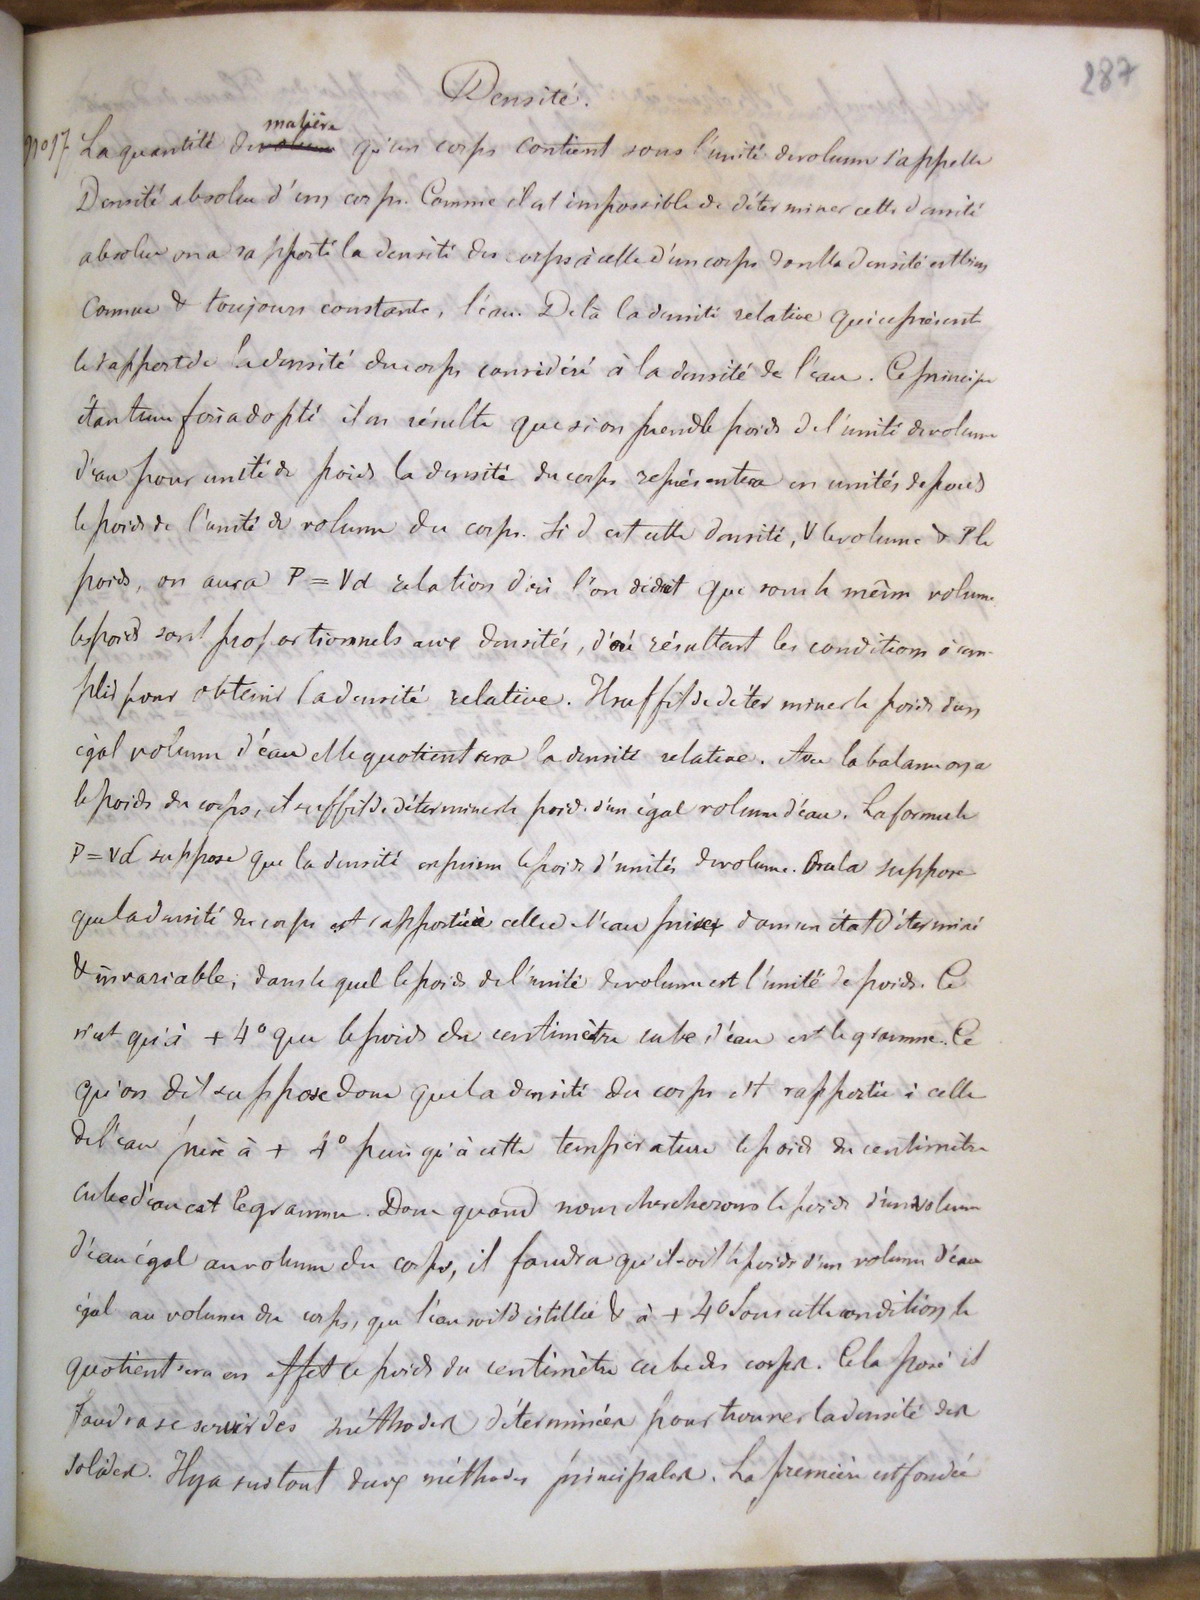 287
Densité.
nº 17 La quantité de matière qu'un corps contient sous l'unité de volume s'appelle
Densité absolue d'un corps. Comme il est impossible de déterminer cette densité
absolue on a rapporté la densité des corps à celle d'un corps dont la densité est bien
connue & toujours constante, l'eau. De là la densité relative qui représente
le rapport de la densité du corps considéré à la densité de l'eau. Ce principe
étant une fois adopté il en résulte que si on prend le poids de l'unité de volume
d'eau pour unité de poids la densité du corps représentera en unités de poids
le poids de l'unité de volume du corps. Si d est cette densité, V le volume & P le
poids, on aura P = Vd relation d'où l'on déduit que sous le même volume
les poids sont proportionnels aux densités, d'où résultent les conditions à rem-
plir pour obtenir la densité relative. Il suffit de déterminer le poids d'un
égal volume d'eau et le quotient sera la densité relative. Avec la balance on a
le poids du corps, il suffit de déterminer le poids d'un égal volume d'eau. La formule
P = Vd suppose que la densité exprime le poids d'unités de volume. Or cela suppose
que la densité du corps est rapportée à celle de l'eau prise dans un état déterminé
& invariable, dans lequel le poids de l'unité de volume est l'unité de poids. Ce
n'est qu'à + 4º que le poids du centimètre cube d'eau est le gramme. Ce
qu'on dit suppose donc que la densité du corps est rapportée à celle
de l'eau prise à + 4º puisqu'à cette température le poids du centimètre
cube d'eau est le gramme. Donc quand nous chercherons le poids d'un volume
d'eau égal au volume du corps, il faudra qu'il soit le poids d'un volume d'eau
égal au volume du corps, que l'eau soit distillée & à + 4º Sous cette condition le
quotient sera en effet le poids du centimètre cube des corps. Cela posé il
faudra se servir des méthodes déterminées pour trouver la densité des
solides. Il y a surtout deux méthodes principales. La première est fondée